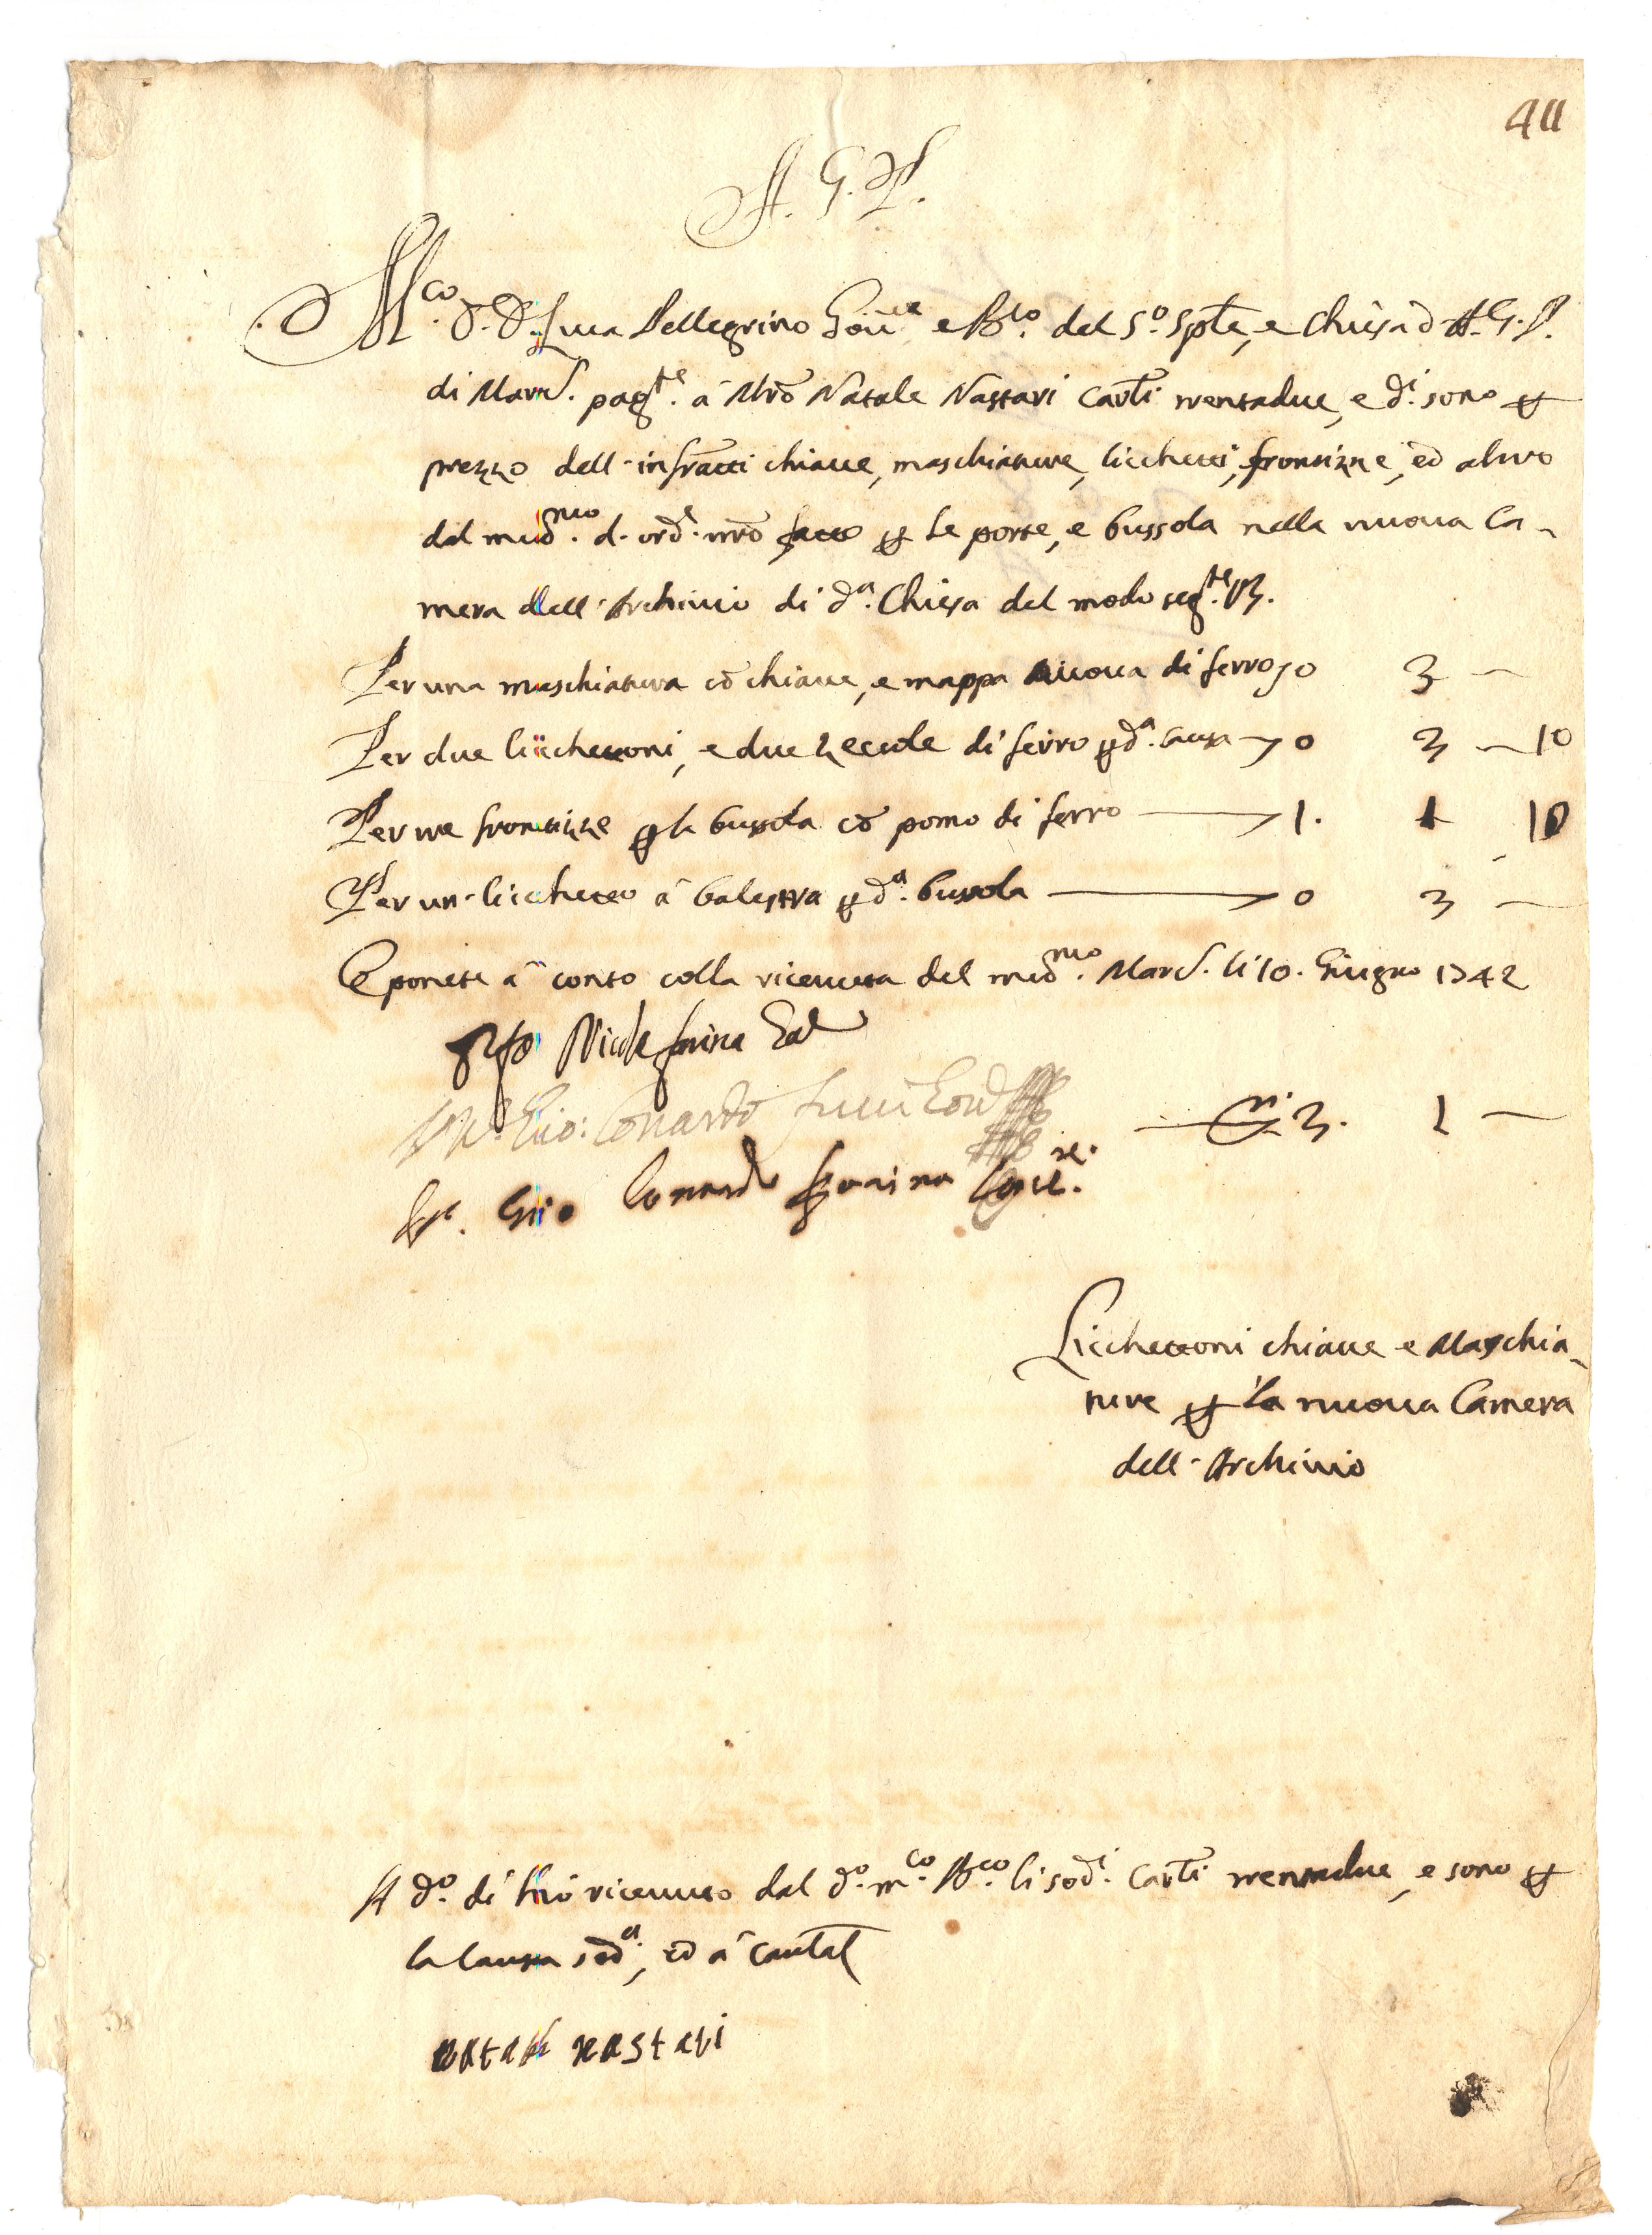 411
A. G. P.
M.co D. D. Luca Pellegrino Gov.re e B.ro del S.o Spte, e Chiesa d. A. G. P.
di Mard. pag.te a Mro Natale Nastari Carli trentadue, e d.i sono p
prezzo dell'infratti chiave, maschiature, licchetti, frontizze, ed altro
dal med.mo d. ord.e nro fatto p le porte, e bussola nella nuova Ca-
mera dell'Archivio di d.a Chiesa del modo seg.te
Per una maschiatura cō chiave, e mappa nuova di ferro 0 3 —
Per due licchettoni, e due zeccole di ferro p d.a causa 0 3 — 10
Per tre frontizze p la bussola cō pomo di ferro 1. 1 10
Per un licchetto a balestra p d.a bussola 0 3 —
E ponete a conto colla ricevuta del med.mo Mard. li 10. Giugno 1742
Nicola Farina
Gio: Lonardo
3. 1 —
Gio Lonardo
Licchettoni chiave e Maschia-
ture p la nuova Camera
dell'Archivio
A d.o di hò ricevuto dal d.o m.co li sod.i Carli trentadue, e sono p
la causa sod.a, ed a cautal
natale nastari